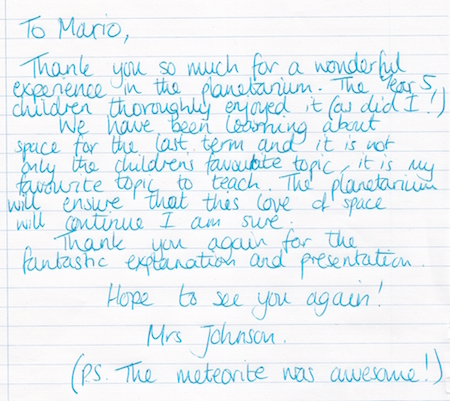 To Mario,
Thank you so much for a wonderful
experience in the planetarium. The Year 5
children thoroughly enjoyed it (as did I!)
We have been learning about
space for the last term and it is not
only the childrens favourite topic, it is my
favourite topic to teach. The planetarium
will ensure that this love of space
will continue I am sure.
Thank you again for the
fantastic explanation and presentation.
Hope to see you again!
Mrs Johnson.
(P.S. The meteorite was awesome!)